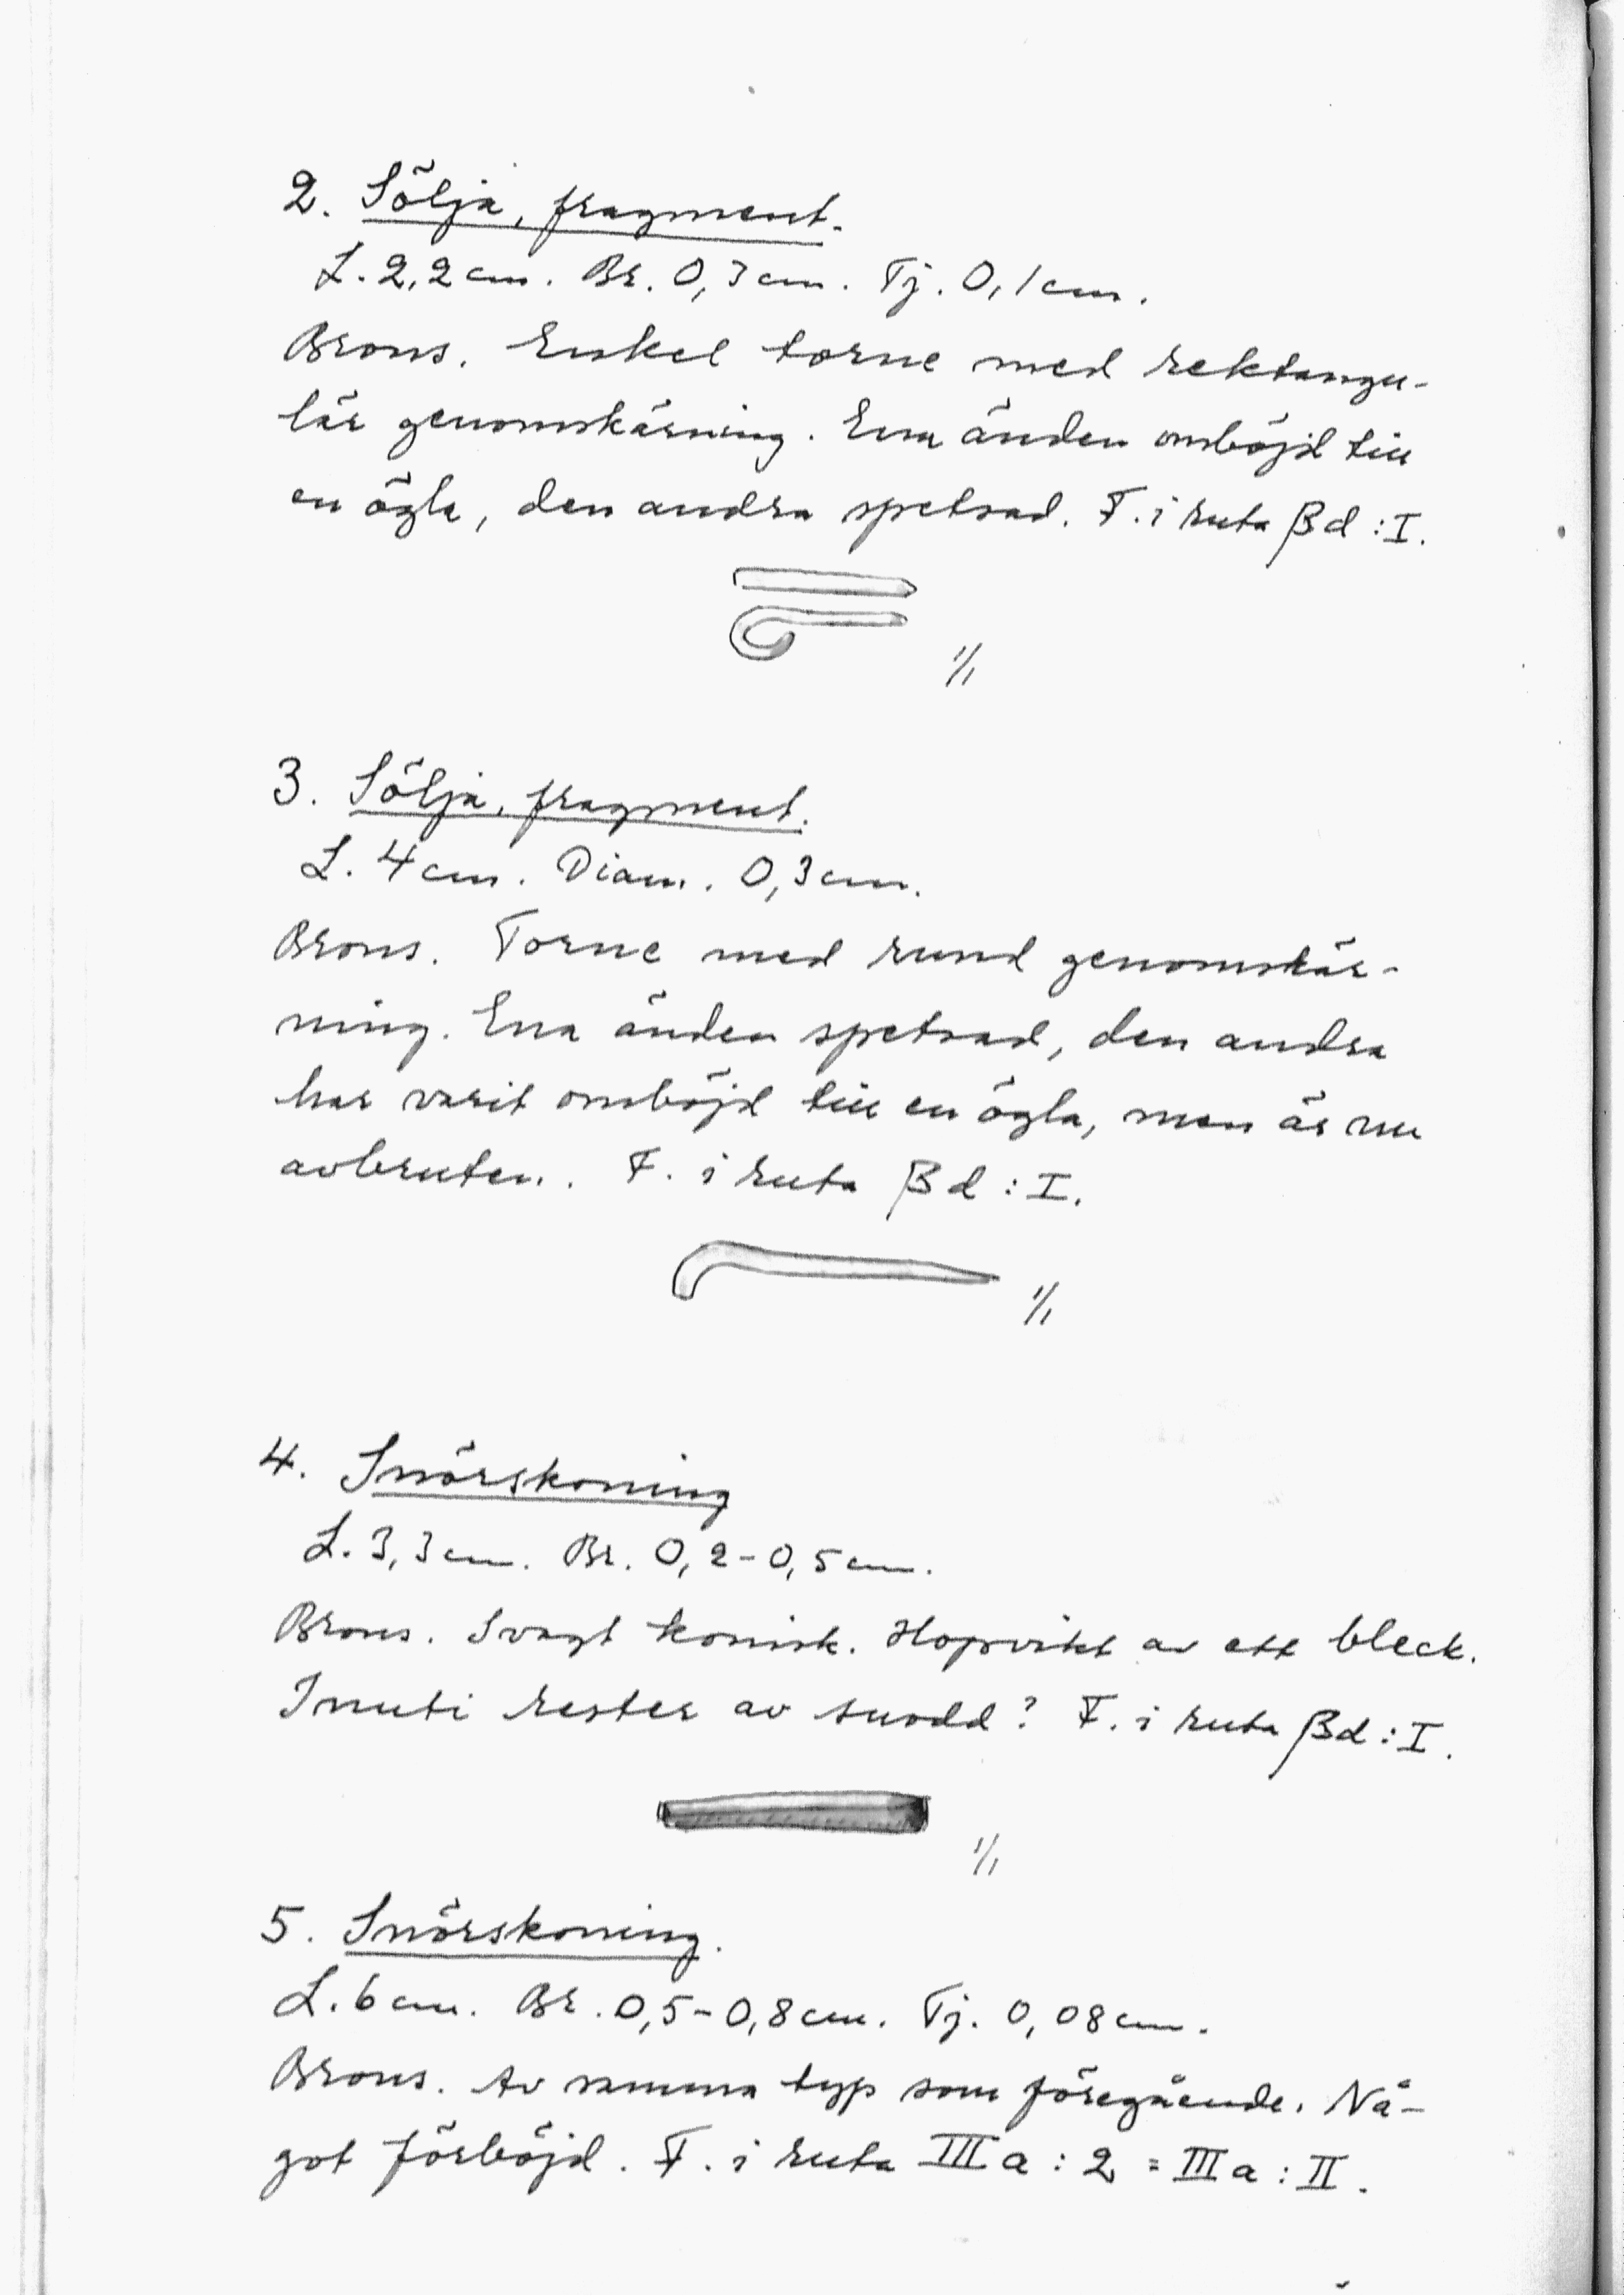 2. Sölja, fragment.
L. 2,2 cm. Br. 0,3 cm. Tj. 0,1 cm.
Brons. Enkel torne med rektangu-
lär genomskärning. Ena änden omböjd till
en ögla, den andra spetsad. F. i ruta βd : I.
1/1
3. Sölja, fragment.
L. 4 cm. Diam. 0,3 cm.
Brons. Torne med rund genomskär-
ning. Ena änden spetsad, den andra
har varit omböjd till en ögla, men är nu
avbruten. F. i ruta βd : I.
1/1
4. Snörskoning
L. 3,3 cm. Br. 0,2-0,5 cm.
Brons. Svagt konisk. Hopvikt av ett bleck.
Inuti rester av snodd? F. i ruta βd : I.
1/1
5. Snörskoning.
L. 6 cm. Br. 0,5-0,8 cm. Tj. 0,08 cm.
Brons. Av samma typ som föregående. Nå-
got förböjd. F. i ruta III a : 2 = III a : II.